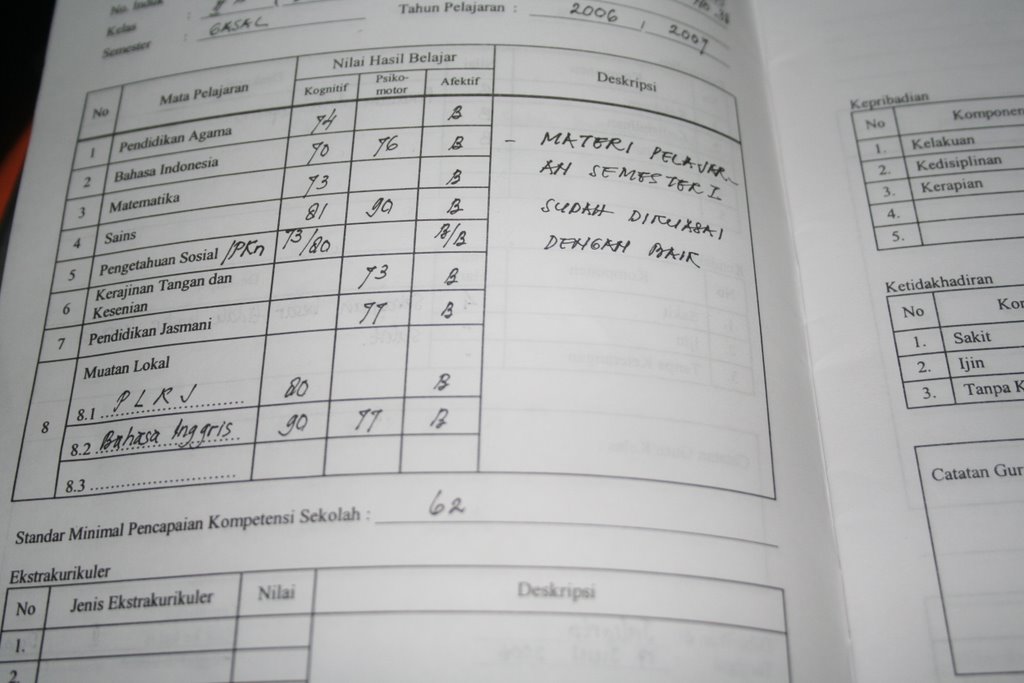 No. Induk
Kelas :
Semester : GASAL
Tahun Pelajaran : 2006 / 2007
No Mata Pelajaran Nilai Hasil Belajar Deskripsi
Kognitif Psiko-motor Afektif
1 Pendidikan Agama 74 B
2 Bahasa Indonesia 70 76 B
3 Matematika 73 B
4 Sains 81 90 B
5 Pengetahuan Sosial /PKn 73/80 B/B
6 Kerajinan Tangan dan Kesenian 73 B
7 Pendidikan Jasmani 77 B
8 Muatan Lokal
8.1 PLKJ 80 B
8.2 Bahasa Inggris 90 77 B
8.3
- MATERI PELAJAR-
AN SEMESTER I
SUDAH DIKUASAI
DENGAN BAIK
Standar Minimal Pencapaian Kompetensi Sekolah : 62
Ekstrakurikuler
No Jenis Ekstrakurikuler Nilai Deskripsi
1.
2
Kepribadian
No Komponen
1. Kelakuan
2. Kedisiplinan
3. Kerapian
4.
5.
Ketidakhadiran
No Kom
1. Sakit
2. Ijin
3. Tanpa K
Catatan Gur